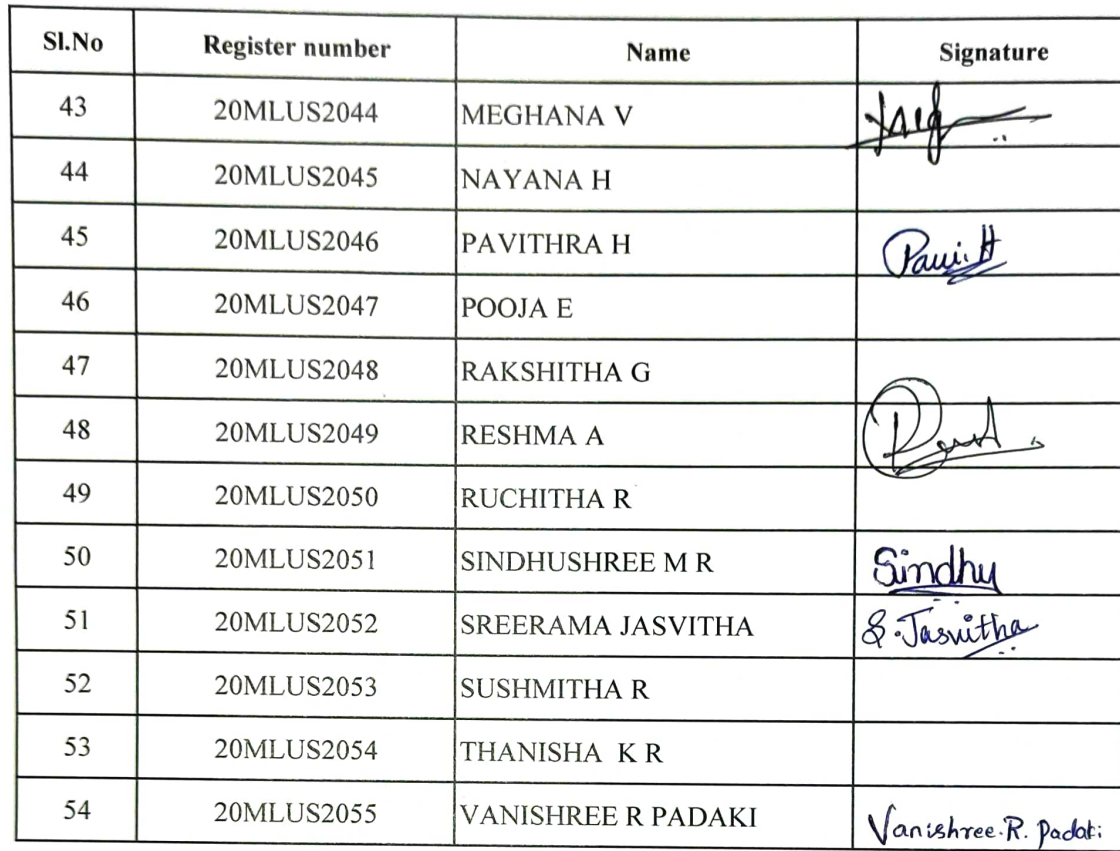 Sl.No Register number Name Signature
43 20MLUS2044 MEGHANA V
44 20MLUS2045 NAYANA H
45 20MLUS2046 PAVITHRA H Pavi.H
46 20MLUS2047 POOJA E
47 20MLUS2048 RAKSHITHA G
48 20MLUS2049 RESHMA A
49 20MLUS2050 RUCHITHA R
50 20MLUS2051 SINDHUSHREE M R Sindhu
51 20MLUS2052 SREERAMA JASVITHA S.Jasvitha
52 20MLUS2053 SUSHMITHA R
53 20MLUS2054 THANISHA K R
54 20MLUS2055 VANISHREE R PADAKI Vanishree.R. Padaki